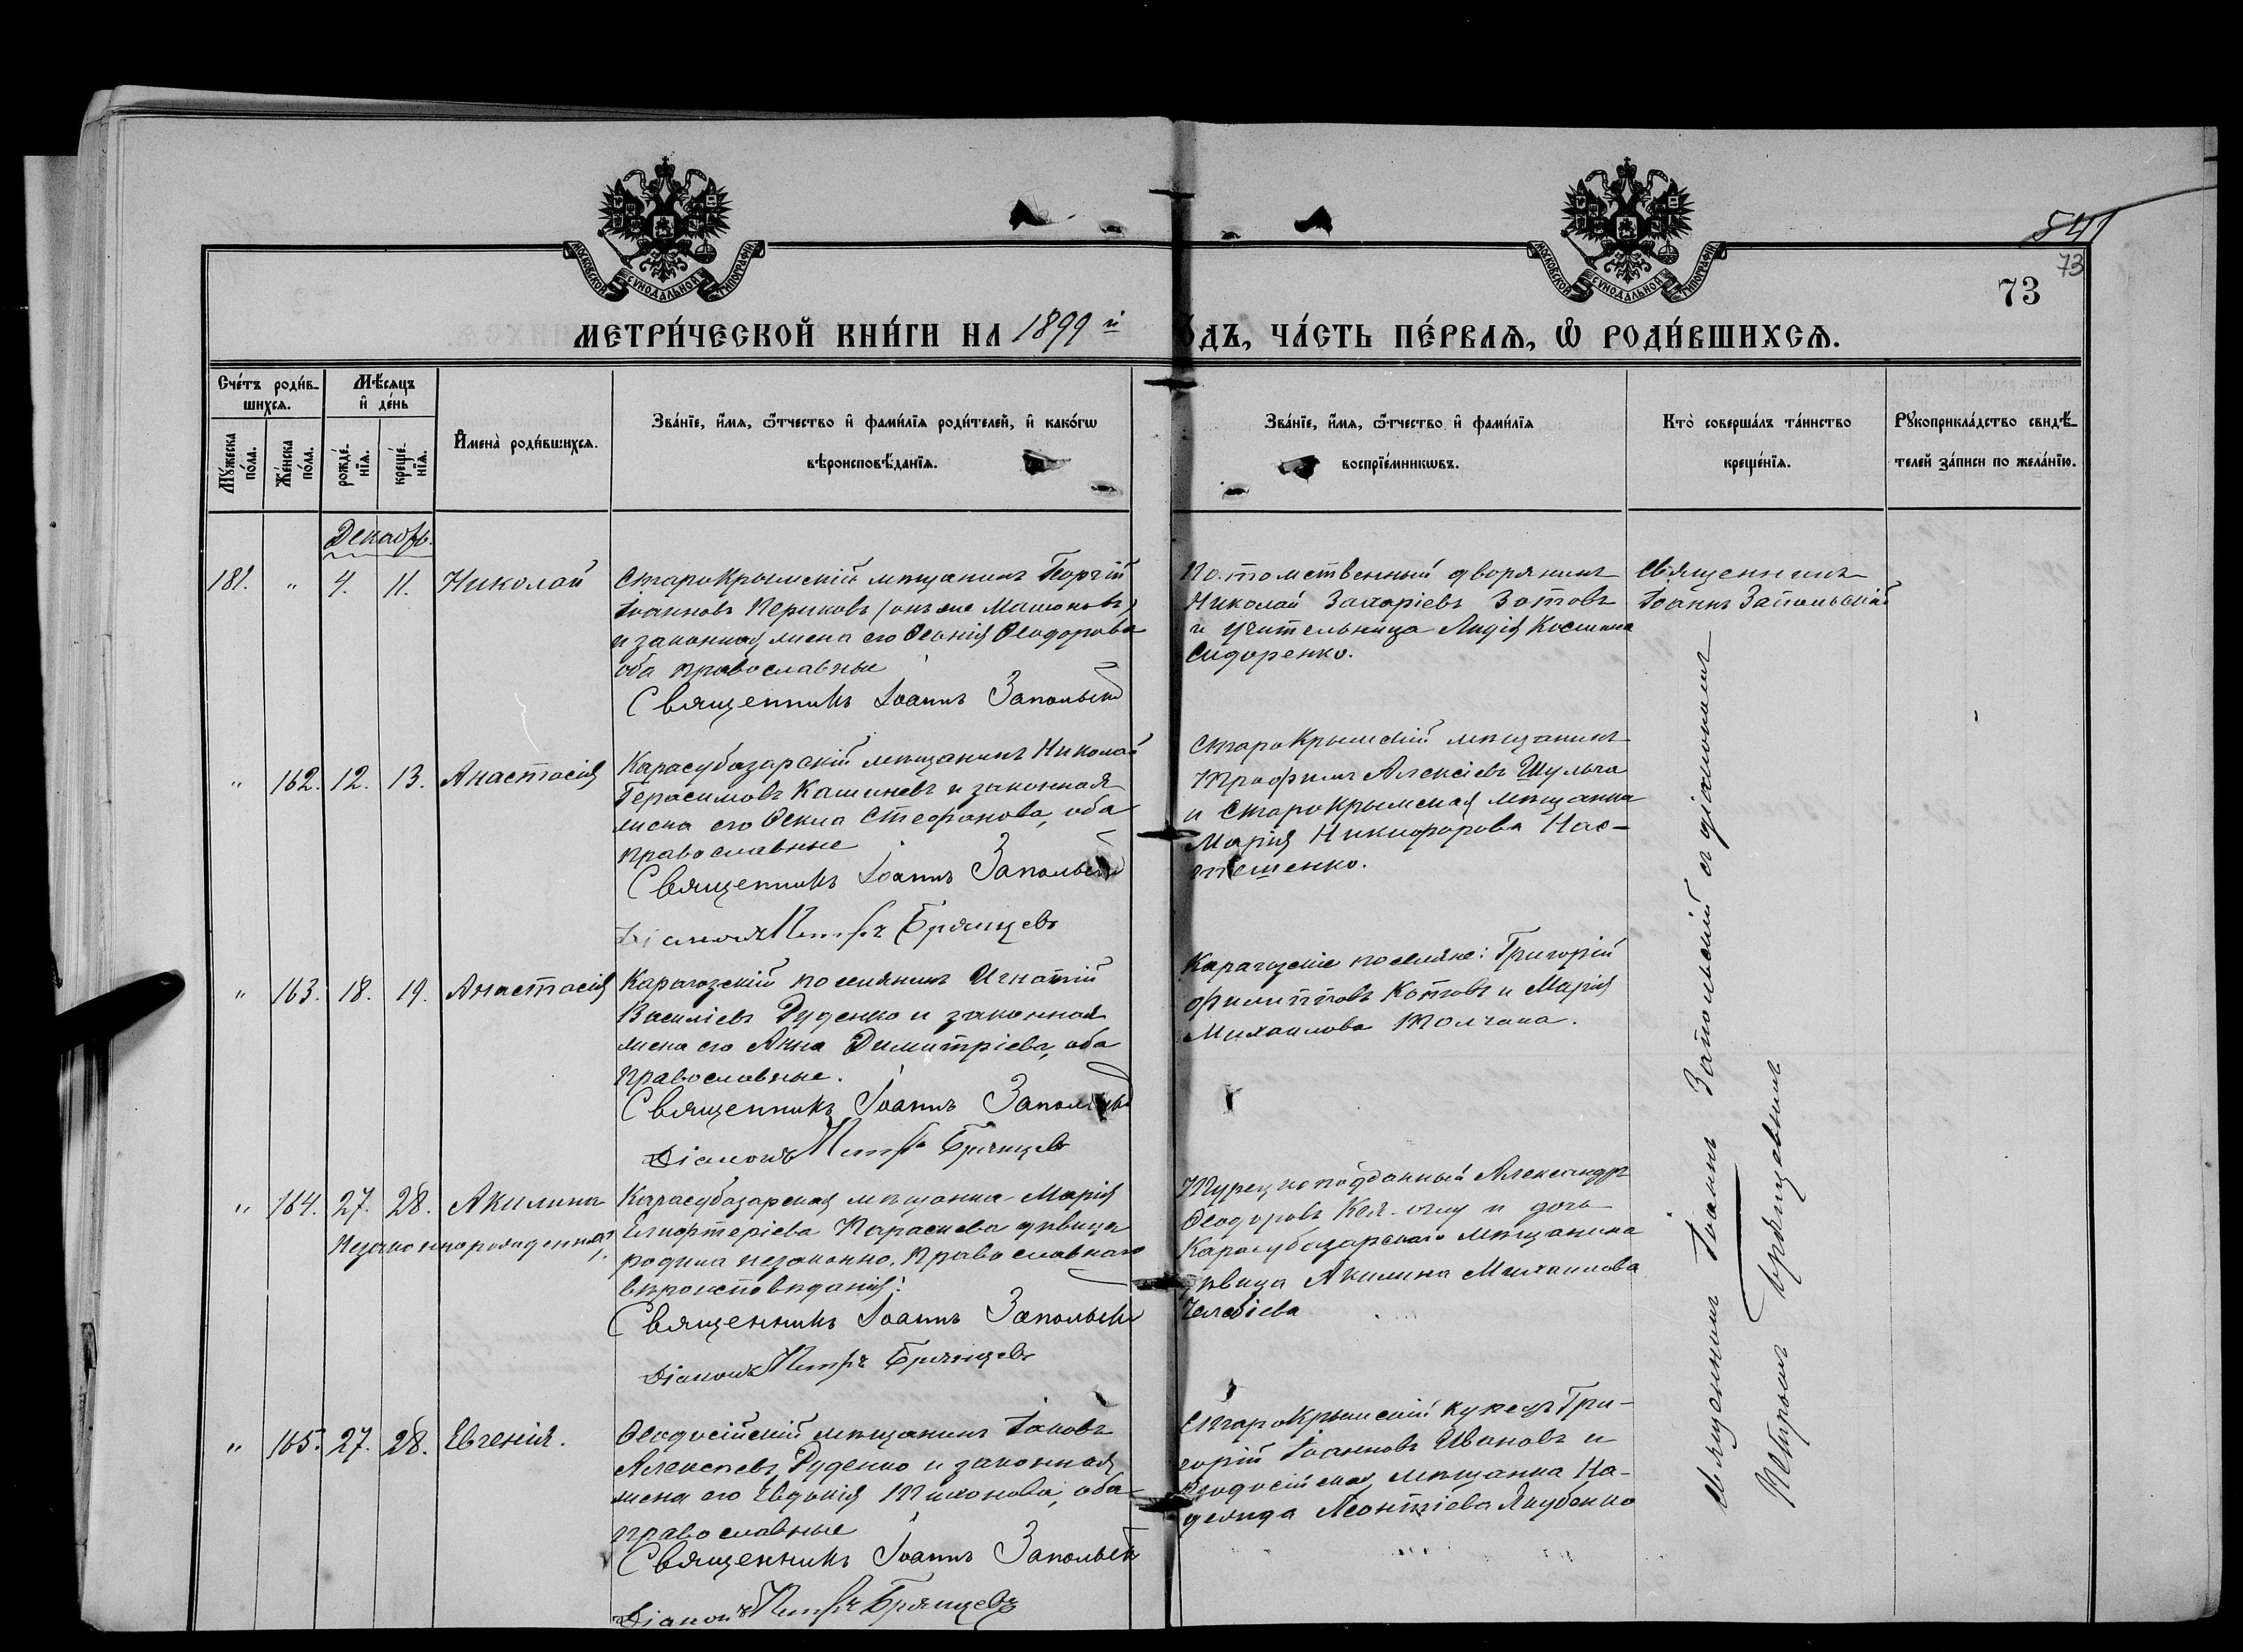 МОСКОВСКОЙ СѴНОДАЛЬНОЙ ТИПОГРАФІИ
МОСКОВСКОЙ СѴНОДАЛЬНОЙ ТИПОГРАФІИ
541
73
73
МЕТРИ́ЧЕСКОЙ КНИ́ГИ НА 1899 й
ОДЪ, ЧА́СТЬ ПЕ́РВАѦ, Ѿ РОДИ́ВШИХСѦ.
Сче́тъ роди́в-
шихсѧ.
Мѣ́сѧцъ
и҆ де́нь
Мꙋ́жеска
по́ла.
Же́нска
по́ла.
рожде́-
нїѧ.
креще́-
нїѧ.
И҆мена̀ роди́вшихсѧ.
Зва́нїе, и҆́мѧ, ѻ҆́тчество и҆ фами́лїѧ роди́телей, и҆ како́гѡ
вѣроисповѣ́данїѧ.
Зва́нїе, и҆́мѧ, ѻ҆́тчество и҆ фами́лїѧ
воспрїе́мникѡвъ.
Кто̀ соверша́лъ та́инство
креще́нїѧ.
Рꙋкоприкла́дство свидѣ́-
телей за́писи по жела́нїю.
Декабрь.
181. " 4. 11. Николай
Старокрымскій мѣщанинъ Георгій
Іоанновъ Периковъ (онъ же Машоновъ)
и законная жена его Ѳеонія Ѳеодорова
оба православные
Священникъ Іоаннъ Запольскій
Потомственный дворянинъ
Николай Захаріевъ Зотовъ
и учительница Лидія Косьмина
Сидоренко.
Священникъ
Іоаннъ Запольскій
" 162. 12. 13. Анастасія
Карасубазарскій мѣщанинъ Николай
Герасимовъ Кашиневъ и законная
жена его Ѳекла Стефанова, оба
православные
Священникъ Іоаннъ Запольскій
Діаконъ Петръ Брянцевъ
Старокрымскій мѣщанинъ
Трофимъ Алексіевъ Шульга
и Старокрымская мѣщанка
Марія Никифорова Нас-
тешенко.
" 163. 18. 19. Анастасія
Карагозскій поселянинъ Игнатій
Василіевъ Руденко и законная
жена его Анна Димитріева, оба
православные.
Священникъ Іоаннъ Запольскій
Діаконъ Петръ Брянцевъ
Карагозскіе поселяне: Григорій
Филипповъ Котовъ и Марія
Михаилова Толчана.
" 164. 27. 28. Акилина
Незаконнорожденная,
Карасубазарская мѣщанка Марія
Елифтеріева Параскева дѣвица
родила незаконно, православнаго
вѣроисповѣданія.
Священникъ Іоаннъ Запольскій
Діаконъ Петръ Брянцевъ
Турецкоподданный Александръ
Ѳеодоровъ Кел-оглу и дочь
Карасубазарскаго мѣщанина
дѣвица Акилина Михаилова
Челебіева
" 165. 27. 28. Евгенія.
Ѳеодосійскій мѣщанинъ Іаковъ
Алексѣевъ Руденко и законная
жена его Евдокія Тихонова, оба
православные
Священникъ Іоаннъ Запольскій
Діаконъ Петръ Брянцевъ
Старокрымскій купецъ Гри-
горій Іоанновъ Ивановъ и
Ѳеодосійская мѣщанка На-
дежда Леонтіева Якубенко
Священникъ Іоаннъ Запольскій съ діакономъ
Петромъ Брянцевымъ